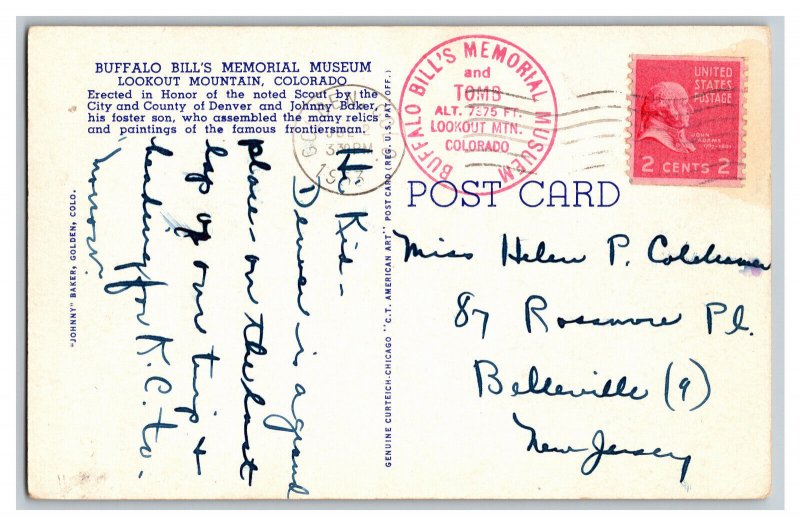 BUFFALO BILL'S MEMORIAL MUSEUM
LOOKOUT MOUNTAIN, COLORADO
Erected in Honor of the noted Scout by the
City and County of Denver and Johnny Baker,
his foster son, who assembled the many relics
and paintings of the famous frontiersman.
BUFFALO BILL'S MEMORIAL MUSEUM
and
TOMB
ALT. 7375 FT.
LOOKOUT MTN.
COLORADO
GOLDEN
330PM
UNITED
STATES
POSTAGE
JOHN
ADAMS
2 CENTS 2
POST CARD
Hi Kid -
Denver is a grand
place - on the last
lap of our trip &
heading for K.C. to-
morrow.
Miss Helen P.
87 Rossmore Pl.
Belleville (9)
New Jersey
"JOHNNY" BAKER, GOLDEN, COLO.
GENUINE CURTEICH-CHICAGO "C.T. AMERICAN ART" POST CARD (REG. U.S. PAT. OFF.)